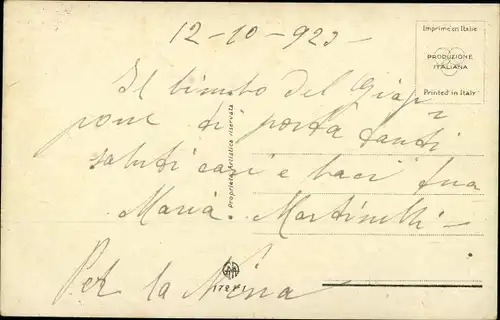 12-10-923-
Imprimé en Italie
PRODUZIONE
ITALIANA
Printed in Italy
Il bimbo del Giap
pone ti porta tanti
saluti cari e baci tua
Maria Martinelli -
Proprietà Artistica riservata
Per la Nina